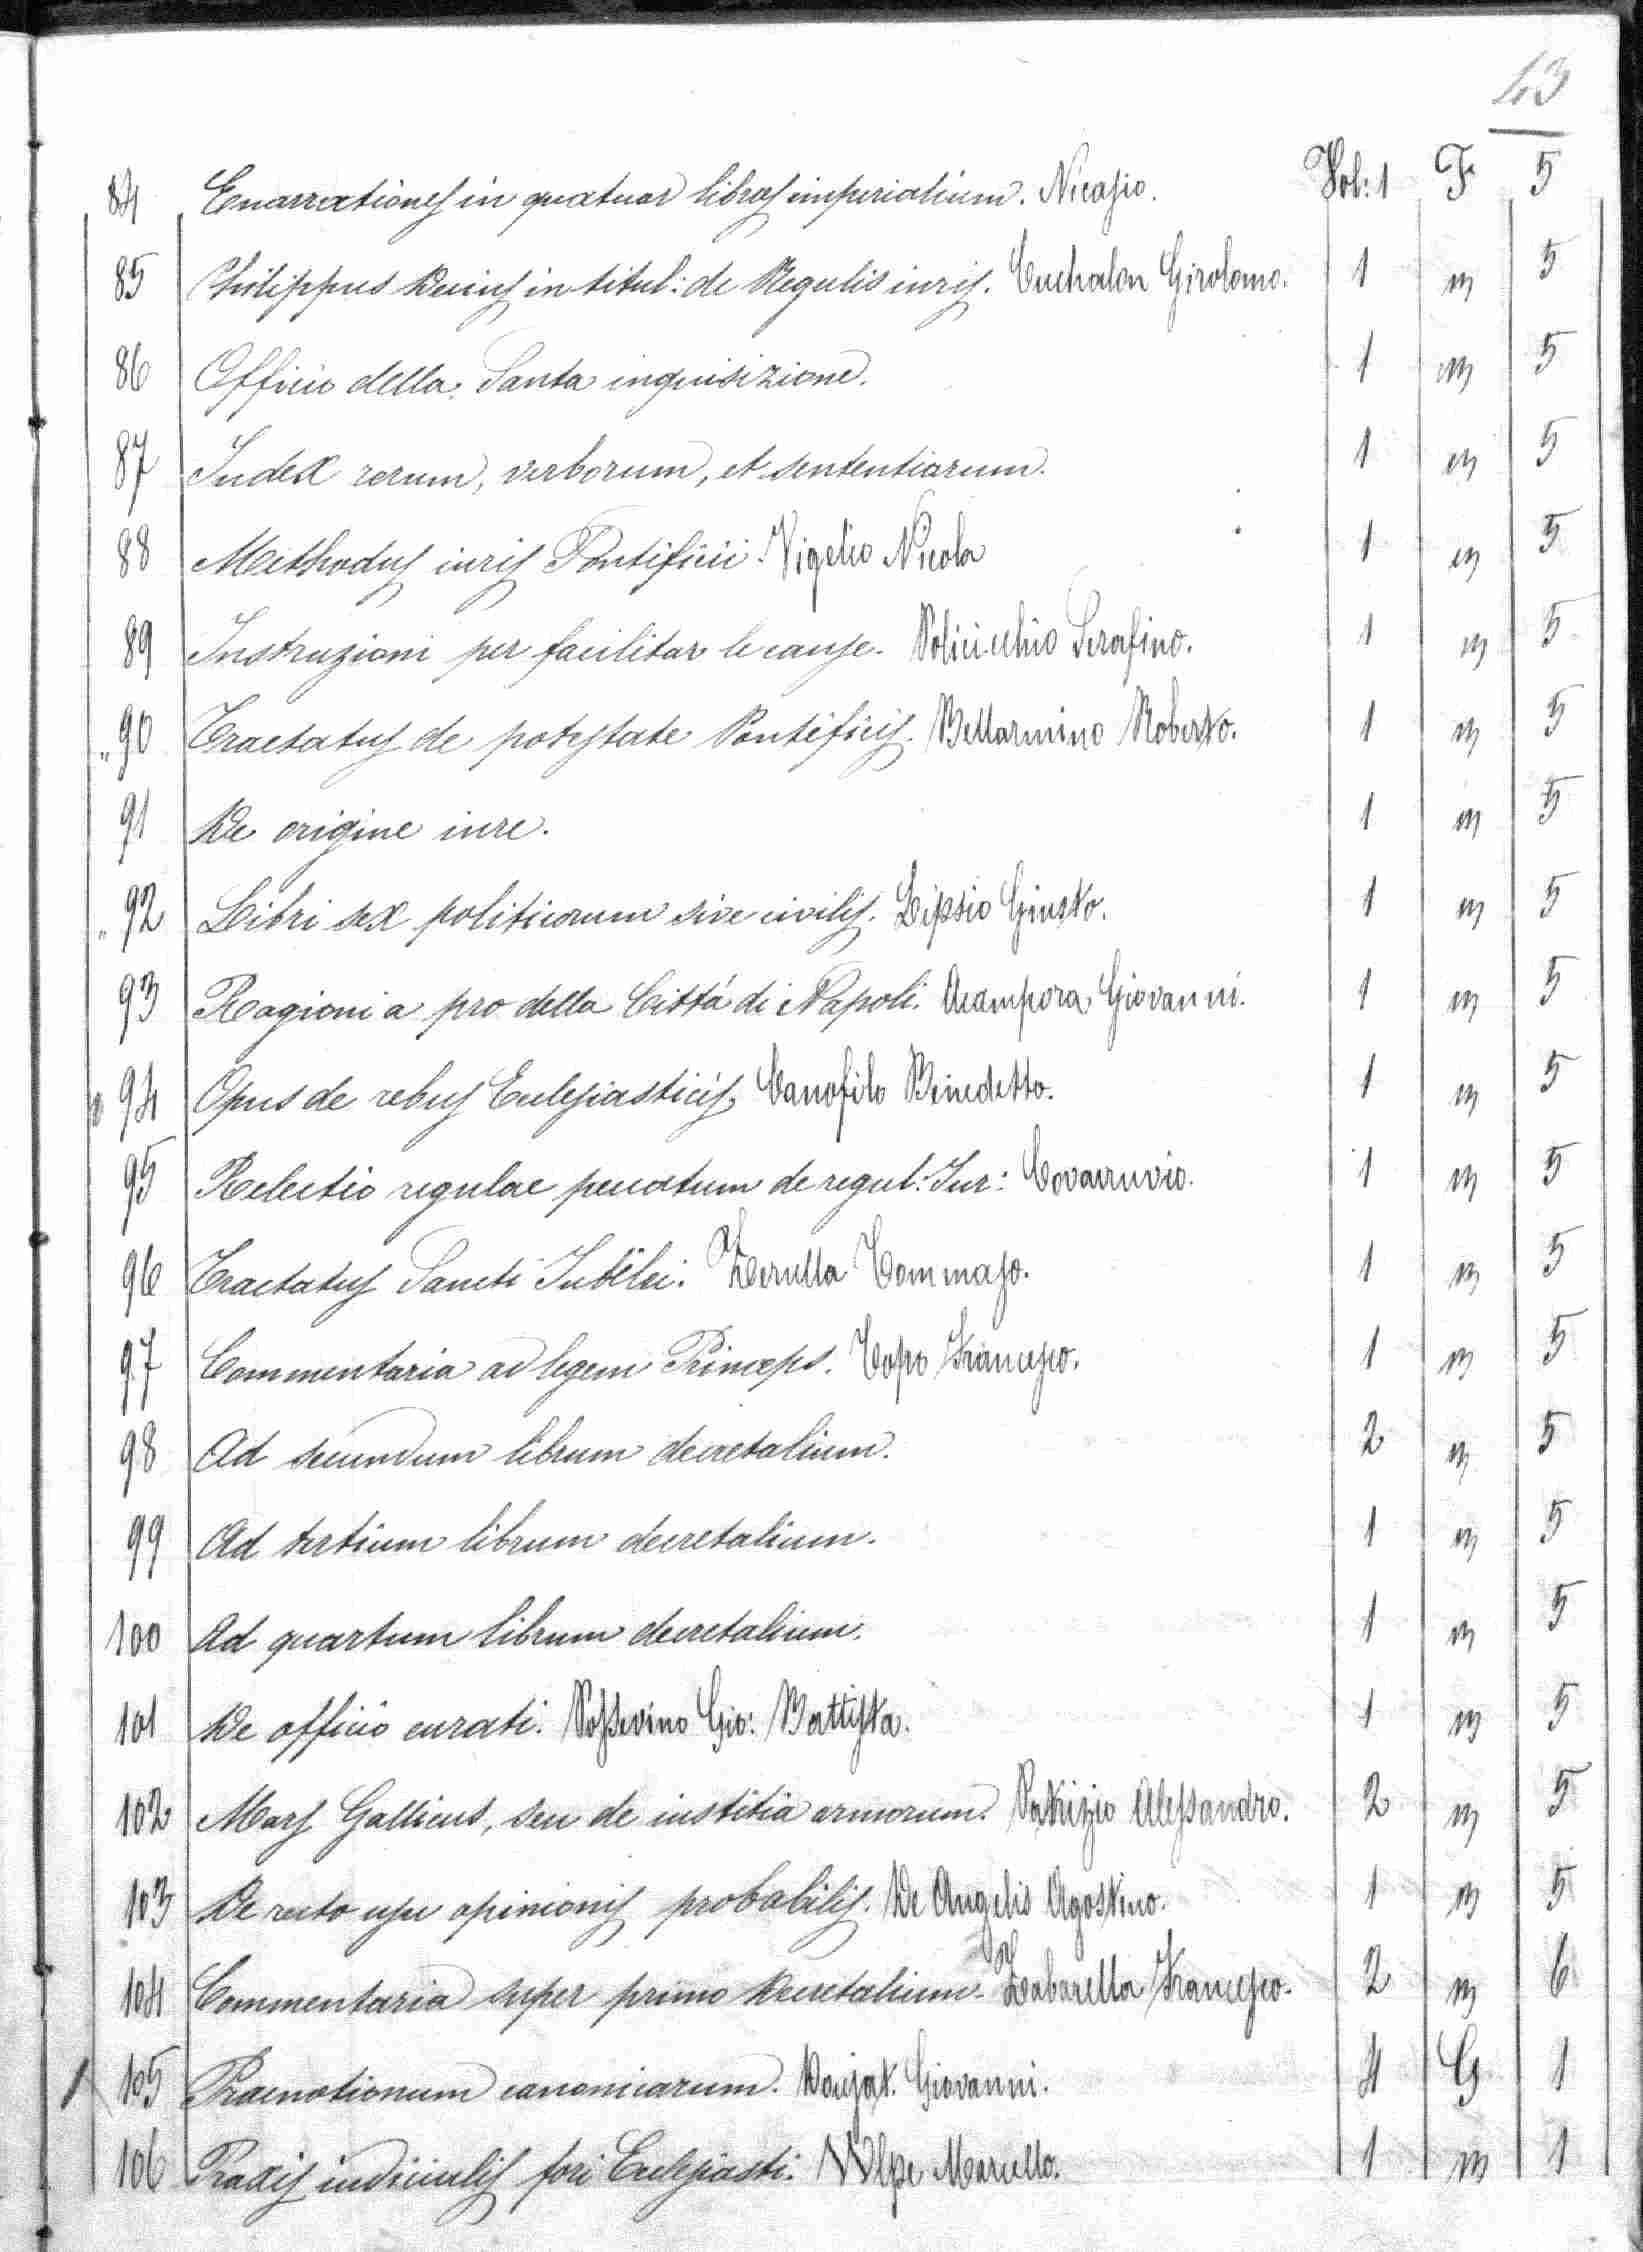 43
84 Enarrationes in quatuor libros imperialium. Nicasio. Vol: 1 F 5
85 Philippus Decius in titul: de Regulis iuris. Cuchalon Girolamo. 1 m 5
86 Officio della Santa inquisizione. 1 m 5
87 Index rerum, verborum, et sententiarum. 1 m 5
88 Methodus iuris Pontificii. Vigelio Nicola 1 m 5
89 Instruzioni per facilitar le cause. Policicchio Serafino. 1 m 5
" 90 Tractatus de potestate Pontificis. Bellarmino Roberto. 1 m 5
91 De origine iure. 1 m 5
" 92 Libri sex politicorum sive civilis. Lipsio Giusto. 1 m 5
93 Ragioni a pro della Cittá di Napoli. Acampora Giovanni. 1 m 5
94 Opus de rebus Eclesiasticis, Canofilo Benedetto. 1 m 5
95 Relectio regulae peccatum de regul: Iur: Covarruvio. 1 m 5
96 Tractatus Sancti Iubilei. Zerulla Tommaso. 1 m 5
97 Commentaria ad legem Princeps. Topo Francesco. 1 m 5
98 Ad secundum librum decretalium. 2 m 5
99 Ad tertium librum decretalium. 1 m 5
100 Ad quartum librum decretalium. 1 m 5
101 De officio curati. Possevino Gio: Battista. 1 m 5
102 Mars Gallicus, seu de iustitia armorum. Patrizio Alessandro. 2 m 5
103 De recto usu opinionis probabilis. De Angelis Agostino. 1 m 5
104 Commentaria super primo Decretalium. Zabarella Francesco. 2 m 6
105 Praenotionum canonicarum. Doujat. Giovanni. 4 G 1
106 Praxis iudicialis fori Eclesiasti. Volpe Marcello. 1 m 1